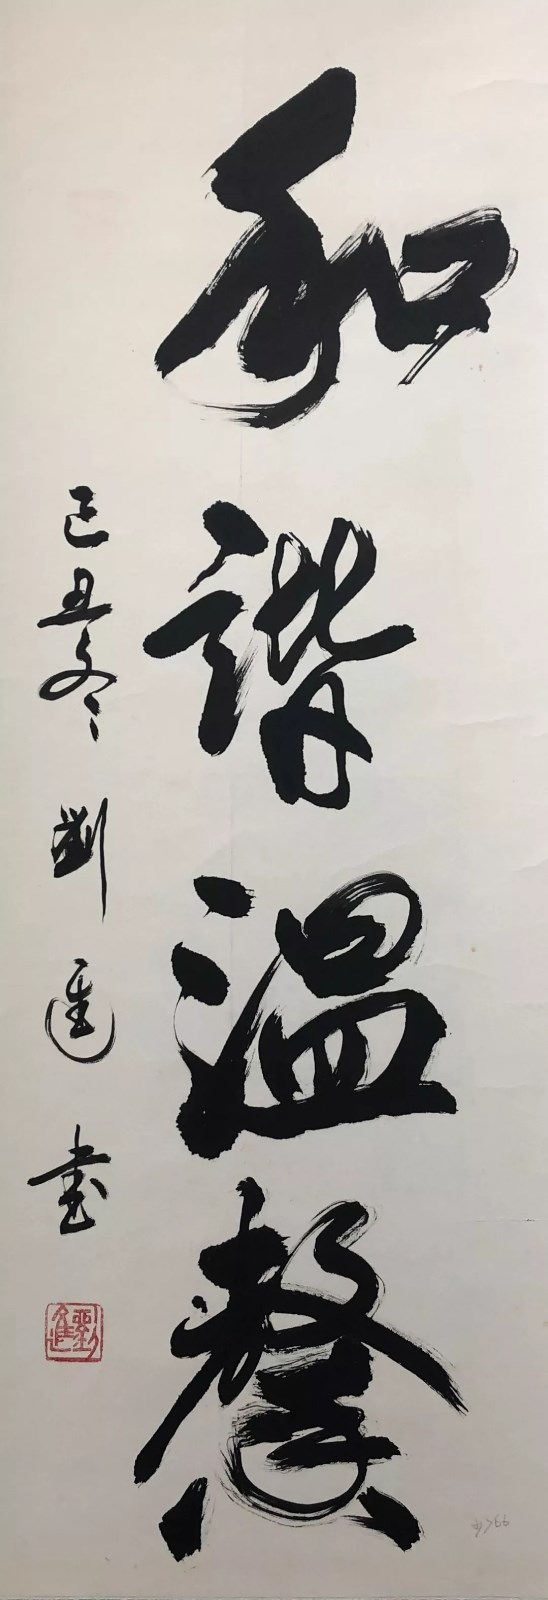 和諧溫馨
己丑冬 劉進書
劉進